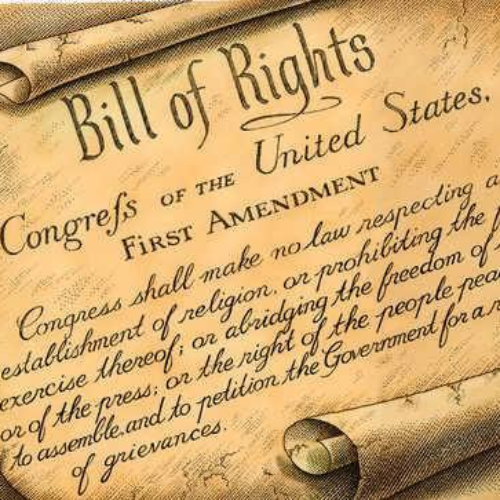 Bill of Rights
Congreſs OF THE United States,
FIRST AMENDMENT
Congress shall make no law respecting a
establishment of religion, or prohibiting the
exercise thereof; or abridging the freedom of
or of the press; or the right of the people pea
to assemble, and to petition the Government for a
of grievances.